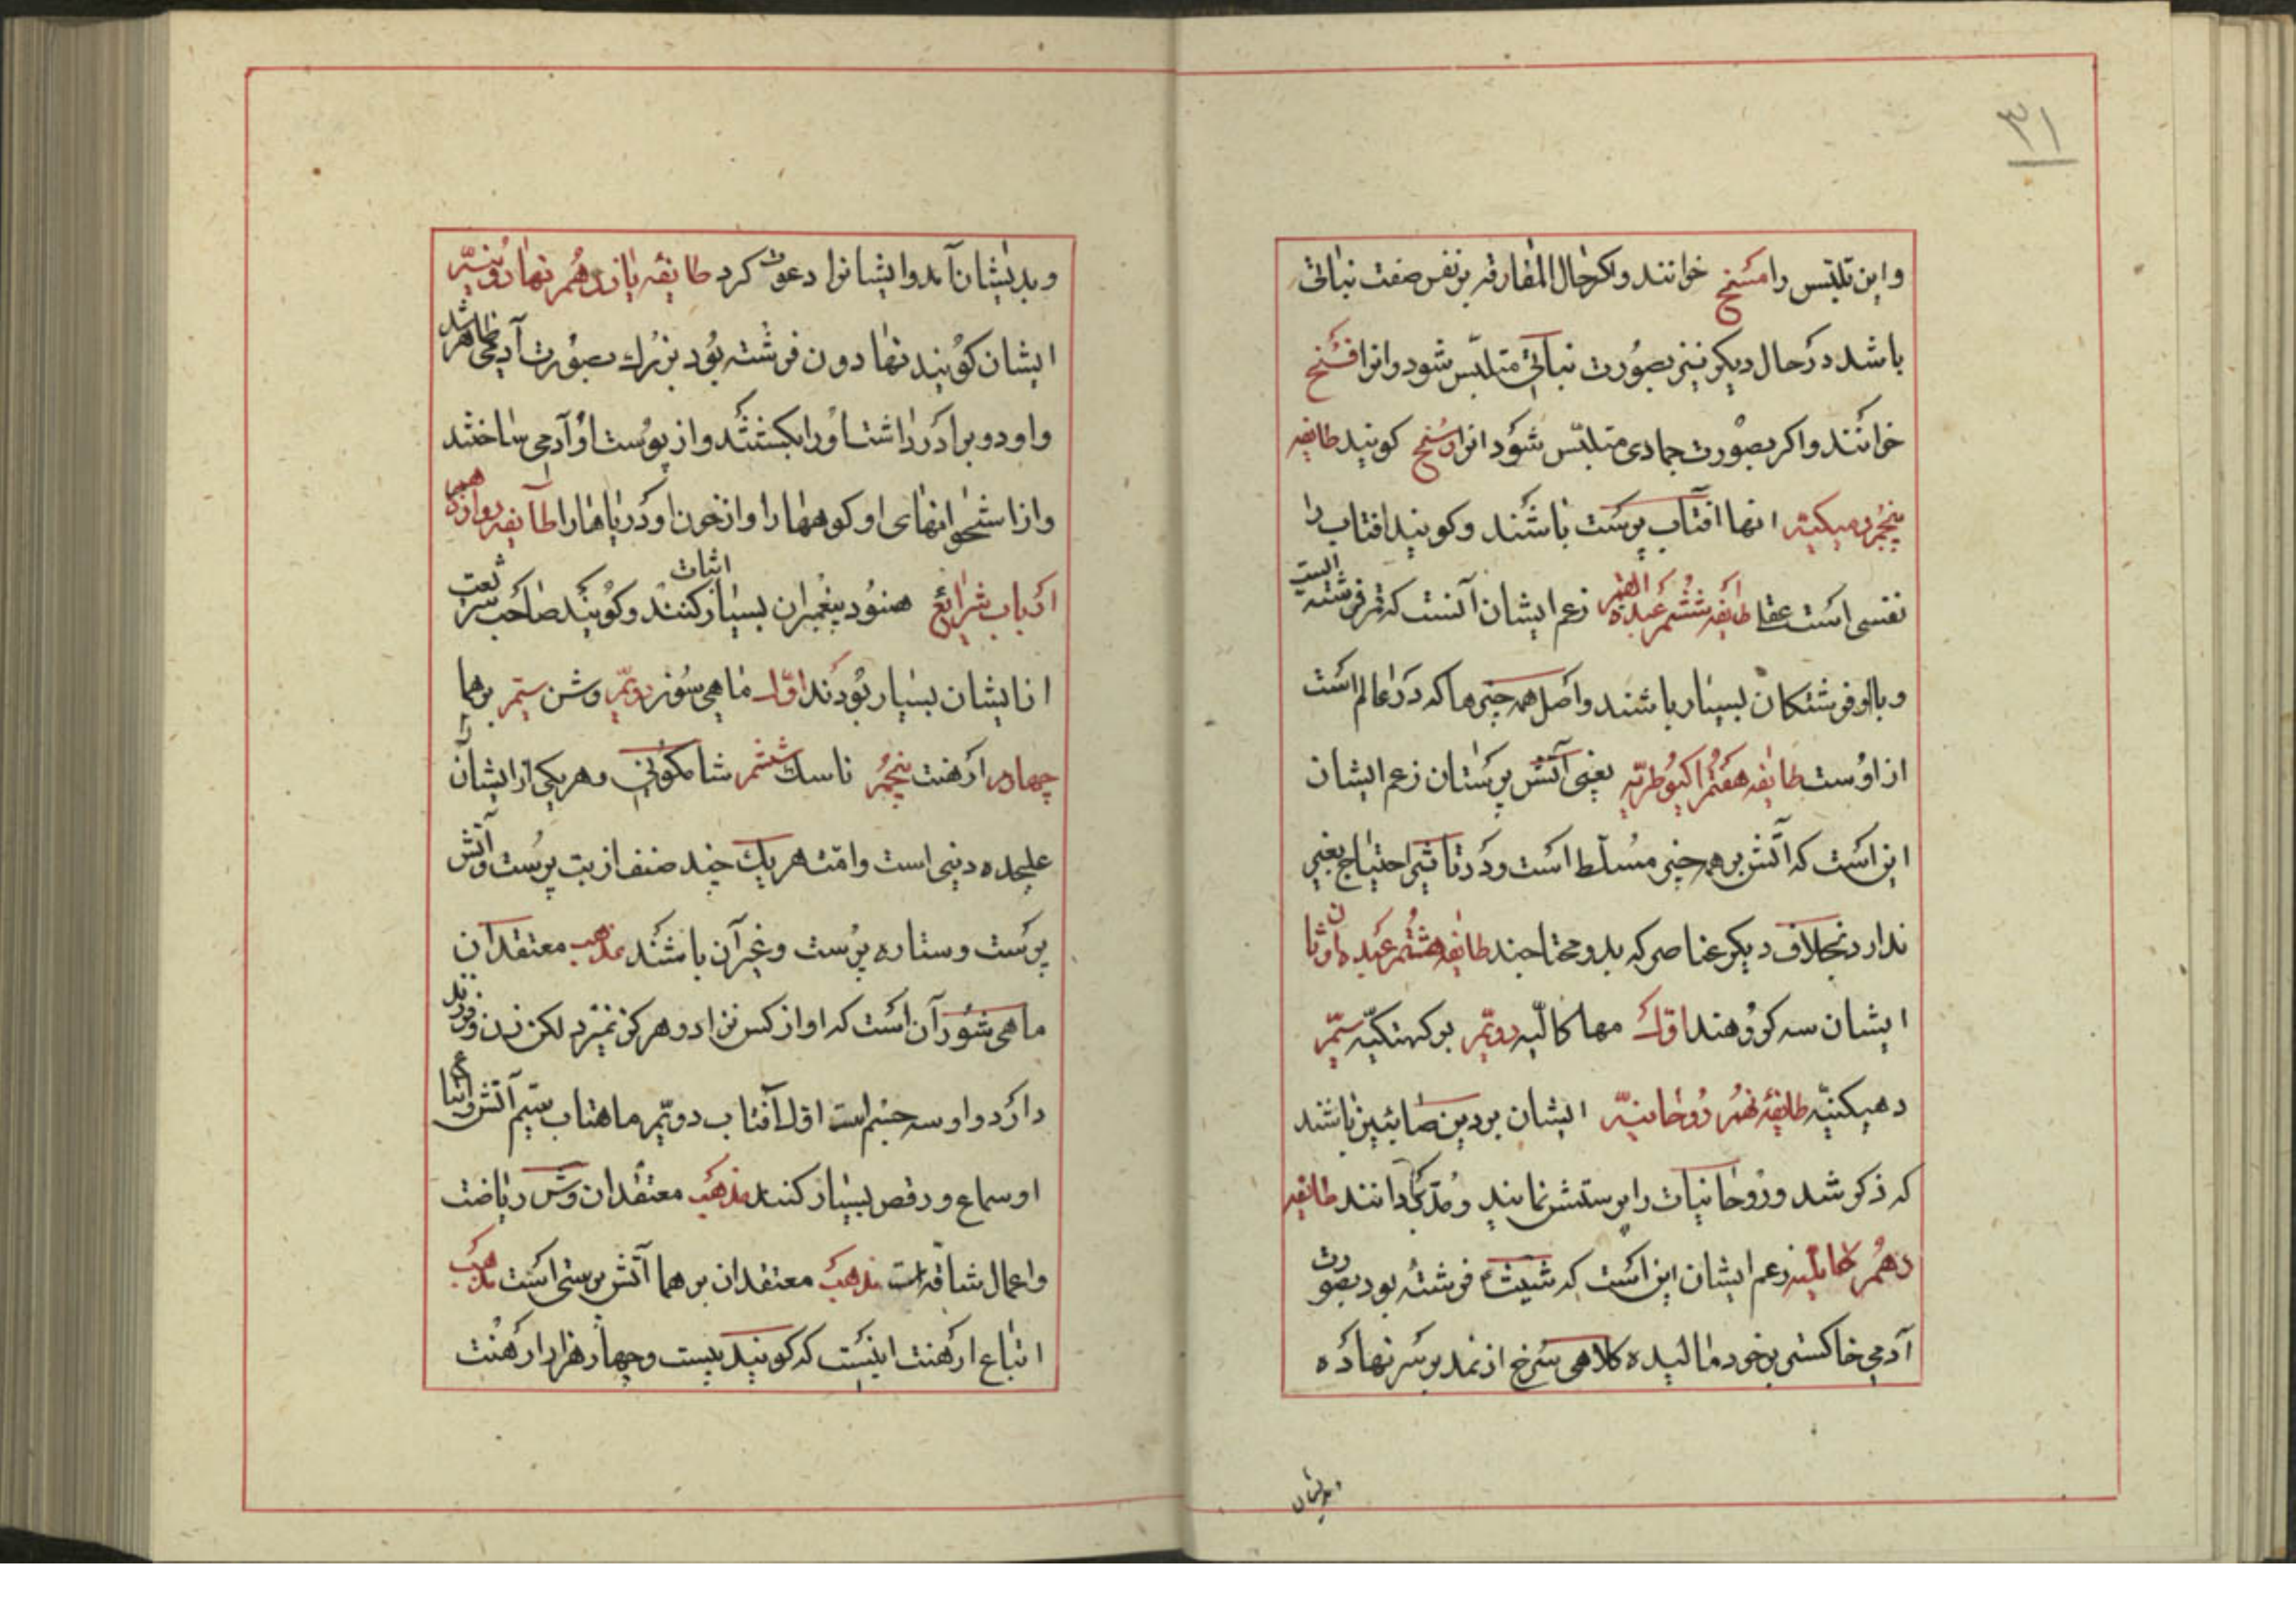 ٣١
واین تلبّس را مسخ خوانند و اکر حال المفارقه بر نفس صفت نباتی
باشد در حال دیکر نیز بصورت نباتی متلبّس شود و انرا فسخ
خوانند و اکر بصورت جمادی متلبّس شود انرا رسخ کویند طایفه
پنجم دمیکیته انها افتاب پرست باشند و کویند افتاب را
نفسی است عقلا طایفه ششم عبدة القمر زعم ایشان آنست که قمر فرشته ایست
و با او فرشتکان بسیار باشند و اصل همه چیزها که در عالم است
از اوست طایفه هفتم اکیوطریّه یعنی آتش پرستان زعم ایشان
این است که آتش بر همه چیز مسلّط است و در تاثیر احتیاج بغیر
ندارد بخلاف دیکر عناصر که بدو محتاجند طایفه هشتم عبده اوثان
ایشان سه کروهند اوّل مهاکالیه دویّم برکهتکیّه سیّم
دهیکنیّه طایفه نهم روحانیّه ایشان بر دین صابئین باشند
که ذکر شد و روحانیات را پرستش نمایند و مدرک دانند طایفه
دهم زعم ایشان این است که شیث فرشته بود بصورت
آدمی خاکستر بر خود مالیده کلاهی سرخ از نمد بر سر نهاده
وبدیشان
و بدیشان آمد و ایشانرا دعوت کرد طایفه یازدهم نهادونیّه
ایشان کویند نهادون فرشته بود بزرک بصورت آدمی ظاهر شد
و او دو برادر داشت او را بکشتند و از پوست او آدمی ساختند
و از استخوانهای او کوهها را و از خون او دریاها را طایفه دوازدهم
ارباب شرایع هنود پیغمبران بسیار اثبات کنند و کویند صاحب شریعت
از ایشان بسیار بودند اوّل ماهی سوز دویّم وشن سیّم برهما
چهارم ارهنت پنجم ناسك ششم شاکمونی و هر یکی از ایشان را
علیحده دینی است و امّت هر یك چند صنف از بت پرست و آتش
پرست و ستاره پرست و غیر آن باشند مذهب معتقدان
ماهی شور آن است که او از کس نزاد و هرکز نمیرد لکن زن و فرزند
دارد و او سه چشم است اوّل آفتاب دویّم ماهتاب سیّم آتش و اتباع
او سماع و رقص بسیار کنند مذهب معتقدان وشن ریاضت
و اعمال شاقّه است مذهب معتقدان برهما آتش پرستی است مذهب
اتباع ارهنت اینست که کویند بیست و چهار هزار ارهنت